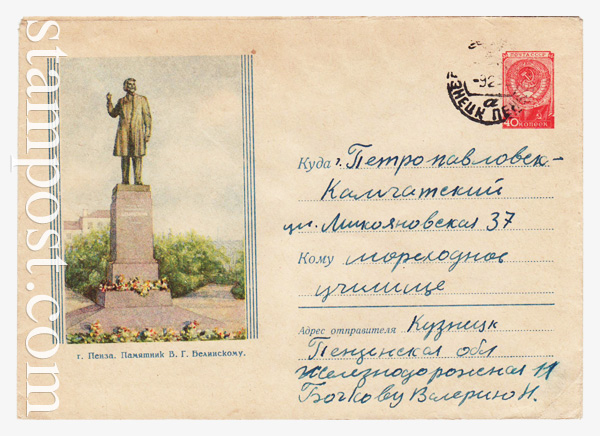 stampost.com
г. Пенза. Памятник В. Г. Белинскому.
ПОЧТА СССР
40 КОПЕЕК
Куда г. Петропавловск-
Камчатский
ул. Микояновская 37
Кому мореходное
училище
Адрес отправителя Кузнецк
Пензенская обл
Железнодорожная 11
Бочкову Валерию Н.